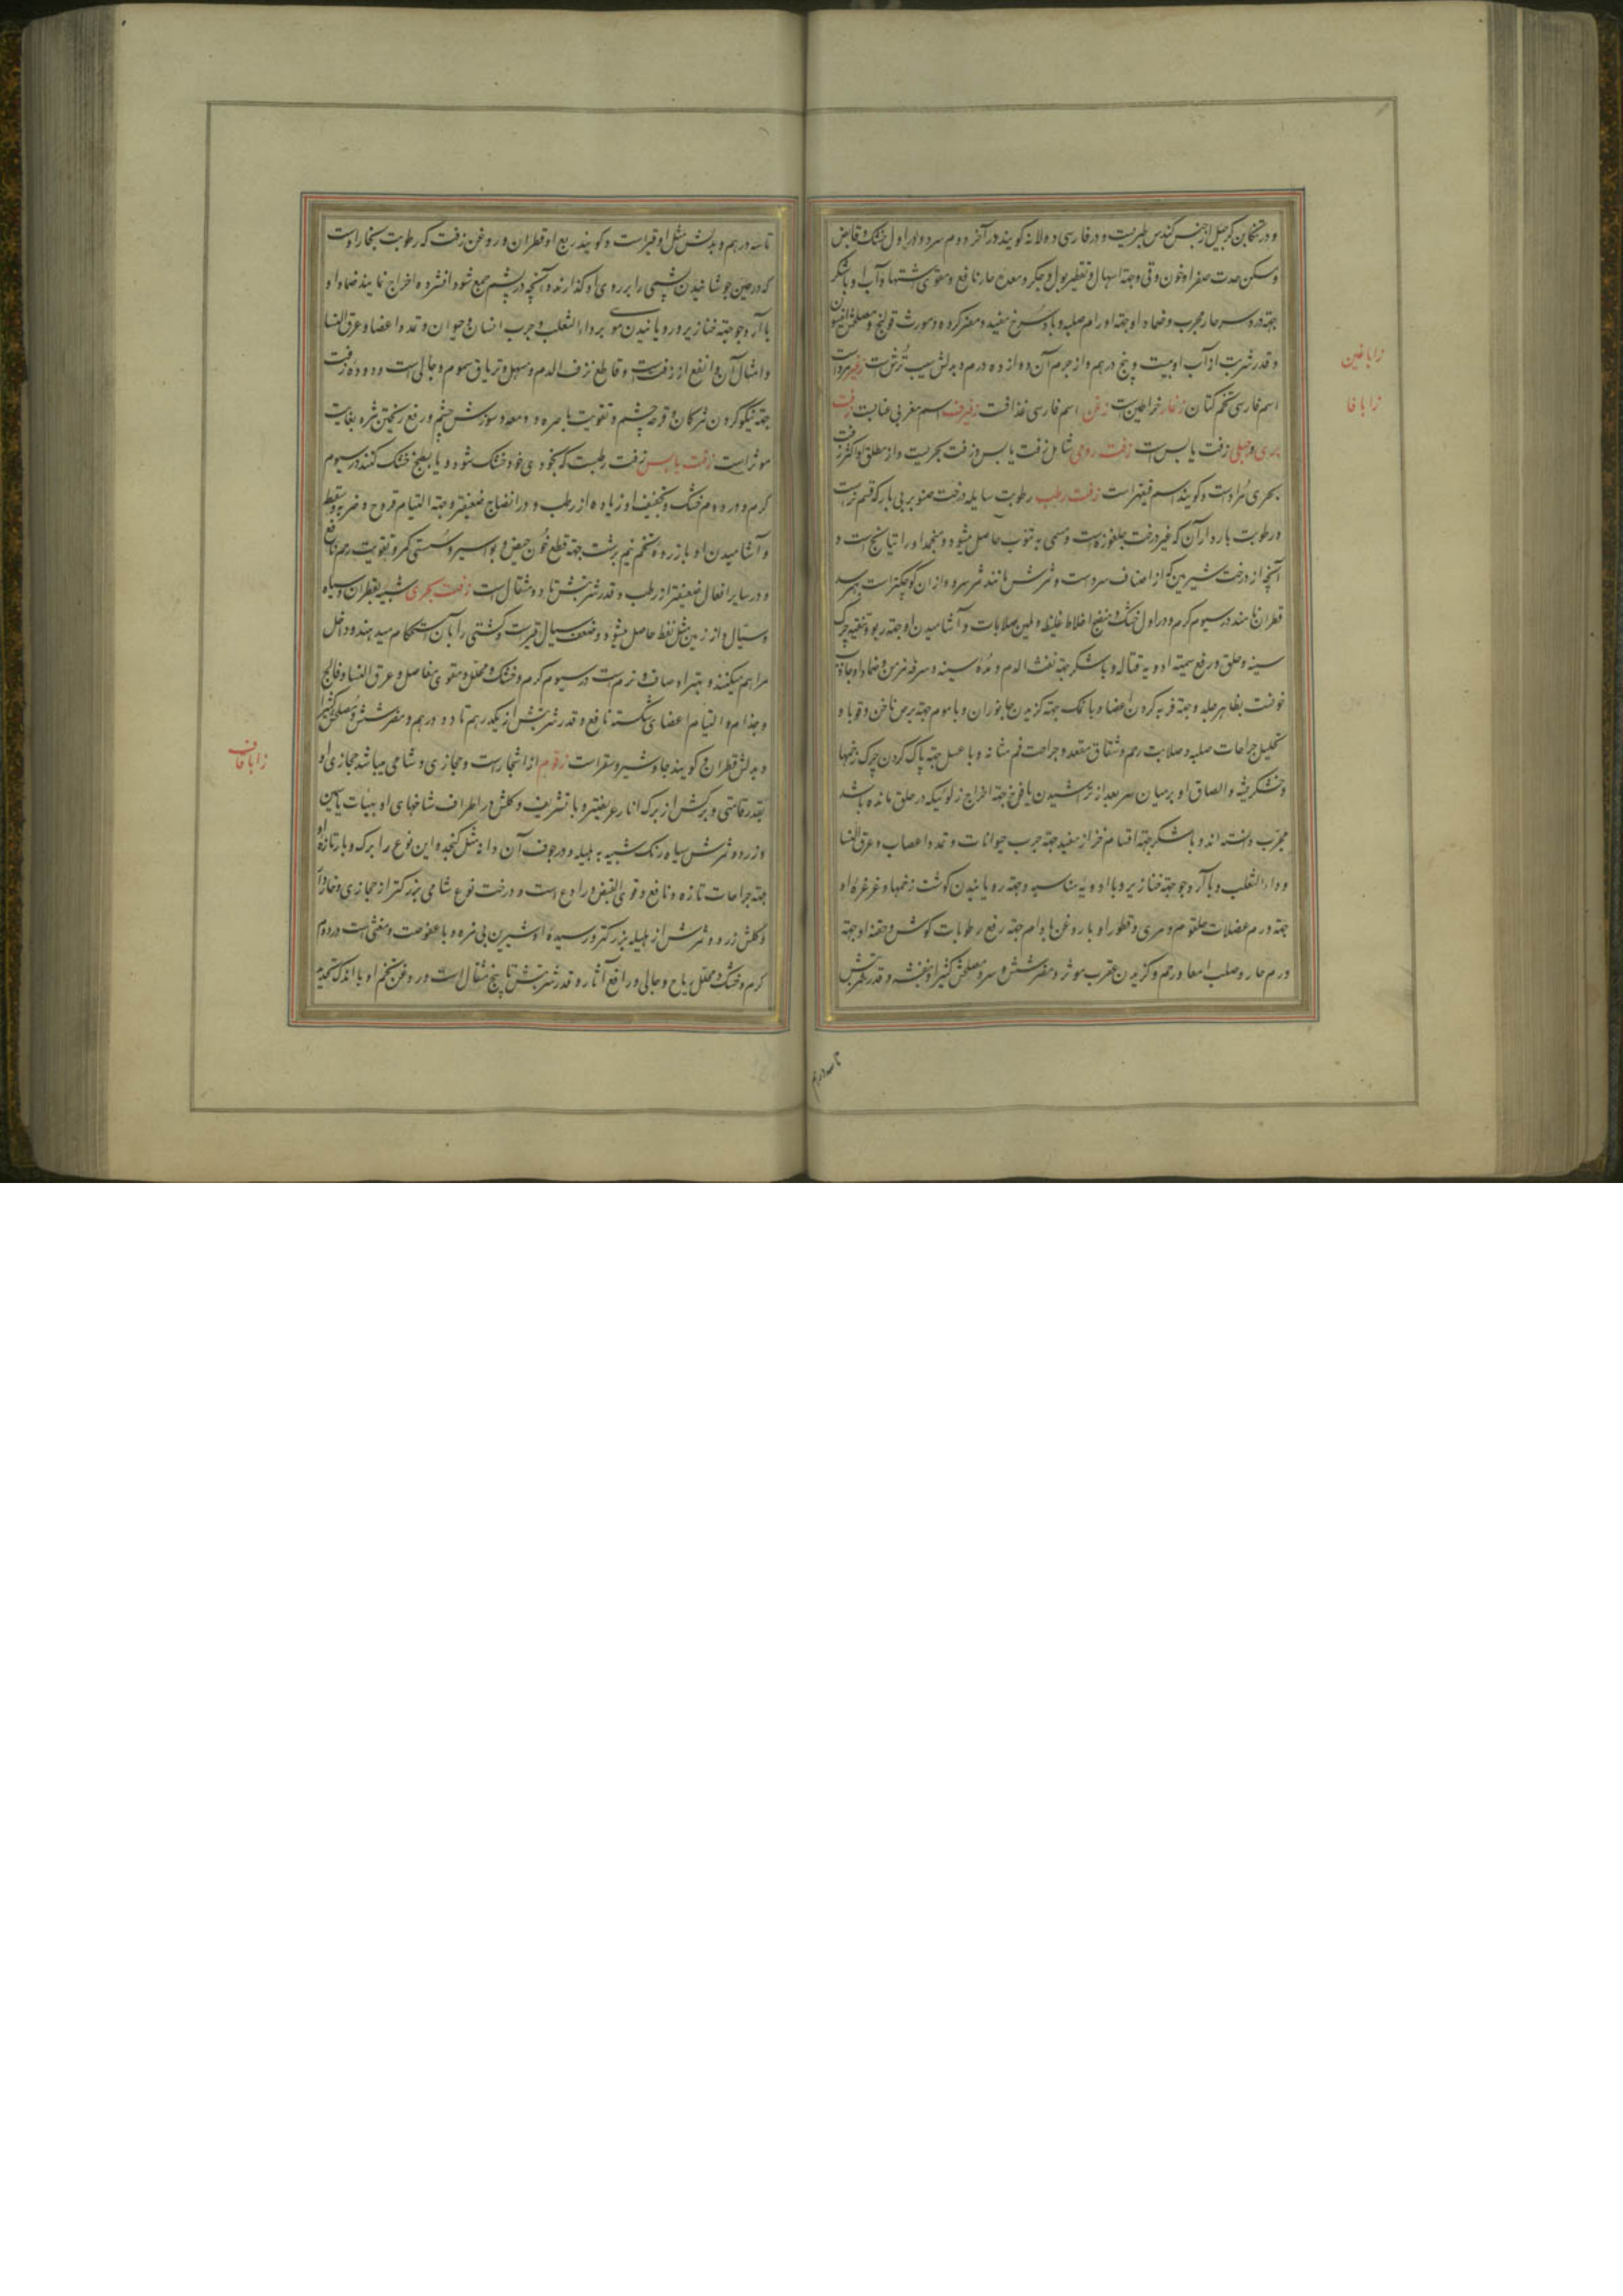 و در تنکابن کرجیل از جنس کندس طبریت و در فارسی دولانه کویند در آخر دوم سرد و در اول خشک و قابض
و مسکن حدت صفرا و خون و قی و جهته اسهال و تقطیر بول و جکر و معده حار نافع و مقوی اشتها و آب او با شکر
جهته درد سر حار مجرب و ضماد او جهته اورام صلبه و باد سرخ مفید و مضر کرده و مورث قولنج و مصلحش انیسون
و قدر شربت از آب او بیست و پنج درهم و از جرم آن ده و از ده درم و بدلش سیب ترش است
زا با غین
اسم فارسی تخم کتان زغار خراطین است زغن اسم فارسی غدافت زفیزف اسم مغربی عنابت زفت
زا با فا
بری و جبلی زفت یابس است زفت رومی شامل زفت یابس و زفت بحریت و از مطلق او اکثر زفت
بحری مراد است و کویند اسم قیقهر است زفت رطب رطوبت سایله درخت صنوبر بی بار که قسم نر است
و رطوبت باردار آن که غیر درخت جلغوزه است و مسمی به تنوب حاصل میشود و منجمد او راتیانج است و
آنچه از درخت شیربین که از اصناف سرو است و ثمرش مانند ثمر سرو و از ان کوچکتر است بهمرسد
قطران نامند در سیوم کرم و در اول خشک و منضج اخلاط غلیظ و ملین صلابات و آشامیدن او جهته ربو و تنقیه چرک
سینه و حلق و رفع سمیته ادویه قتاله و با شکر جهته نفث الدم و مده سینه و سرفه مزمن و ضماد او جاذب
خونست بظاهر جلد و جهته فربه کردن اعضا و با نمک جهته کزیدن جانوران و با موم جهته برص ناخن و قوبا و
تحلیل جراحات صلبه و صلابت رحم و شقاق مقعد و جراحت فم مثانه و با عسل جهته پاک کردن چرک زخمها
و خشکریشه و الصاق او بر میان سر بعد از تراشیدن یافوخ جهته اخراج زلوئیکه در حلق مانده باشد
مجرب دانسته اند و با شکر جهته اقسام خزاز مفید جهته جرب حیوانات و تمدد اعصاب و عرق النسا
و داء الثعلب و با آرد جو جهته خنازیر و با ادویه مناسبه و جهته رویانیدن کوشت زخمها و غرغره او
جهته ورم عضلات حلقوم و مری و قطور او با روغن بادام جهته رفع رطوبات کوش و حقنه او جهته
ورم حار و صلب امعا و رحم و کزیدن عقرب موثر و مضر شش و سر و مصلحش کثیرا و بنفشه و قدر شربتش
تا سه درهم
تا سه درهم و بدلش مثل او قیر است و کویند ربع او قطران و روغن زفت که رطوبت بخار اوست
که در حین جوشانیدن پشمی را بر روی او کذارند و آنچه در پشم جمع شود افشرده اخراج نمایند ضماد او
با آرد جو جهته خنازیر و رویانیدن موی بر داء الثعلب و جرب انسان و حیوان و تمدد اعضا و عرق النسا
و امثال آن و انفع از زفت است و قاطع نزف الدم و مسهل و تریاق سموم و جالی است و دوده زفت
جهته نیکو کردن مژکان و قرحه چشم و تقویت باصره و دمعه و سوزش چشم و رفع ریختن مژه بغایت
موثر است زفت یابس زفت رطبت که بخودی خود خشک شود و یا بطبخ خشک کنند در سیوم
کرم و در دوم خشک و تجفیف او زیاده از رطب و در انضاج ضعیفتر و جهته التیام قروح و ضربه و سقطه
و آشامیدن او با زرده تخم نیم برشت جهته قطع خون حیض و بواسیر و سستی کمر و تقویت رحم نافع
و در سایر افعال ضعیفتر از رطب و قدر شربتش تا دو مثقال است زفت بحری شبیه بقطران و سیاه
و سیال و از زمین مثل نفط حاصل میشود و صنف سیال قیر است و کشتی را بآن استحکام میدهند و داخل
مراهم میکنند و بهترا و صاف و نرم است در سیوم کرم و خشک و محلل و مقوی مفاصل و عرق النسا و فالج
و جذام و التیام اعضای شکسته نافع و قدر شربتش از یکدرهم تا دو درهم و مضر شش و مصلحش کثیرا
و بدلش قطران و کویند جاوشیر و مقر است زقوم از اشجار است و حجازی و شامی میباشد حجازی او
زا با قاف
بقدر قامتی و برکش از برک انار عریضتر و با تشریف و کلش در اطراف شاخهای او بهیئات یاسمین
و زرد و ثمرش سیاه رنک شبیه به هلیله و در جوف آن دانه مثل کنجد و این نوع را برک و بار تازه او
جهته جراحات تازه نافع و قوی القبض و رادع است و درخت نوع شامی بزرکتر از حجازی و خاردار
و کلش زرد و ثمرش از هلیله بزرکتر و رسیده او شیرین بی مزه و با عفوصت و مغثی است در دوم
کرم و خشک و محلل ریاح و جالی و رافع آثار و قدر شربتش تا پنج مثقال است و روغن تخم او با اندک تجدید